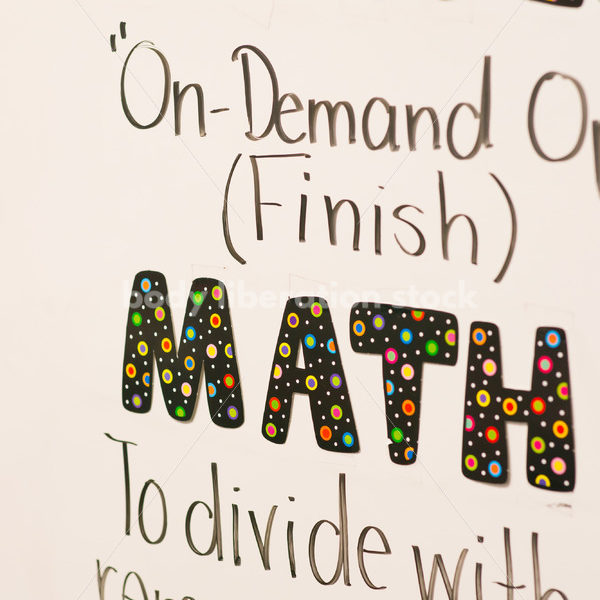 "On-Demand
(Finish)
body liberation stock
MATH
To divide with